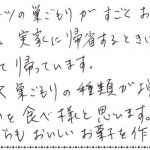 ーツの巣ごもりがすごくお
、実家に帰省するときに
て帰っています。
く巣ごもりの種類が増
を食べ様と思います。
らもおいしいお菓を作